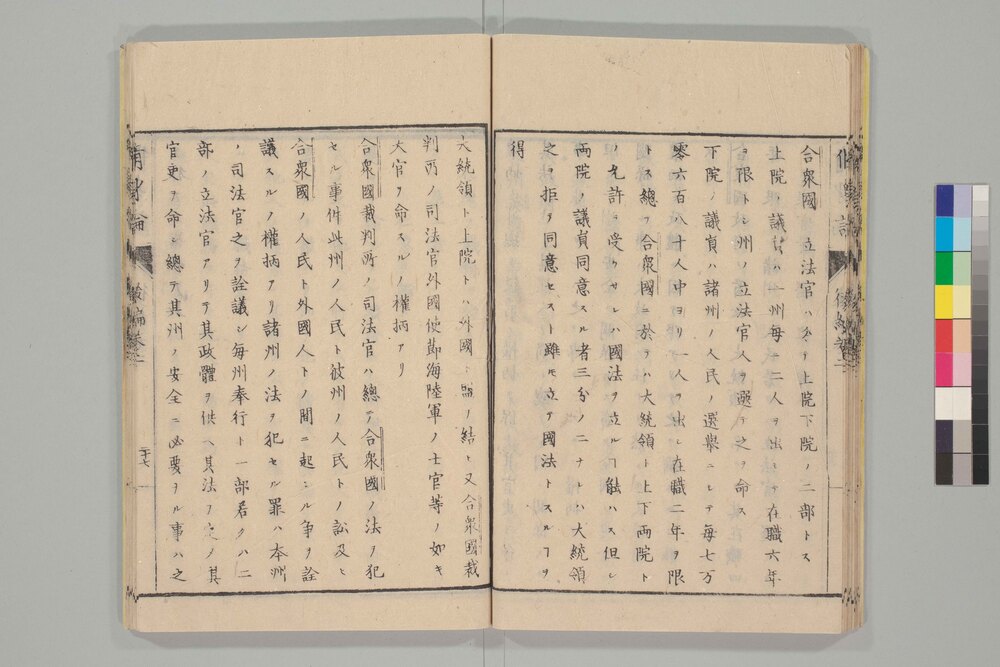 合衆國ノ立法官ハ分テ上院下院ノ二部トス
上院ノ議員ハ一州毎ニ二人ヲ出シテ在職六年
ヲ限トシ州ノ立法官人ヲ選テ之ヲ命ス
下院ノ議員ハ諸州ノ人民ノ選擧ニシテ毎七万
零六百八十人中ヨリ一人ヲ出シ在職二年ヲ限
トス總テ合衆國ニ於テハ大統領ト上下両院ト
ノ允許ヲ受ケサレハ國法ヲ立ルヿ能ハス但シ
両院ノ議員同意スル者三分ノ二ナレハ大統領
之ヲ拒テ同意セスト雖モ立テ國法トスルヿヲ
得
大統領ト上院トハ外國ト盟ヲ結ヒ又合衆國裁
判所ノ司法官外國使節海陸軍ノ士官等ノ如キ
大官ヲ命スルノ權柄アリ
合衆國裁判所ノ司法官ハ總テ合衆國ノ法ヲ犯
セル事件此州ノ人民ト彼州ノ人民トノ訟及ヒ
合衆國ノ人民ト外國人民トノ間ニ起シル争ヲ詮
議スルノ權柄アリ諸州ノ法ヲ犯セル罪ハ本州
ノ司法官之ヲ詮議シ毎州奉行ト一部若クハ二
部ノ立法官アリテ其政體ヲ供ヘ其法ヲ定メ其
官吏ヲ命シ總テ其州ノ安全ニ必要ナル事ハ之
二十七